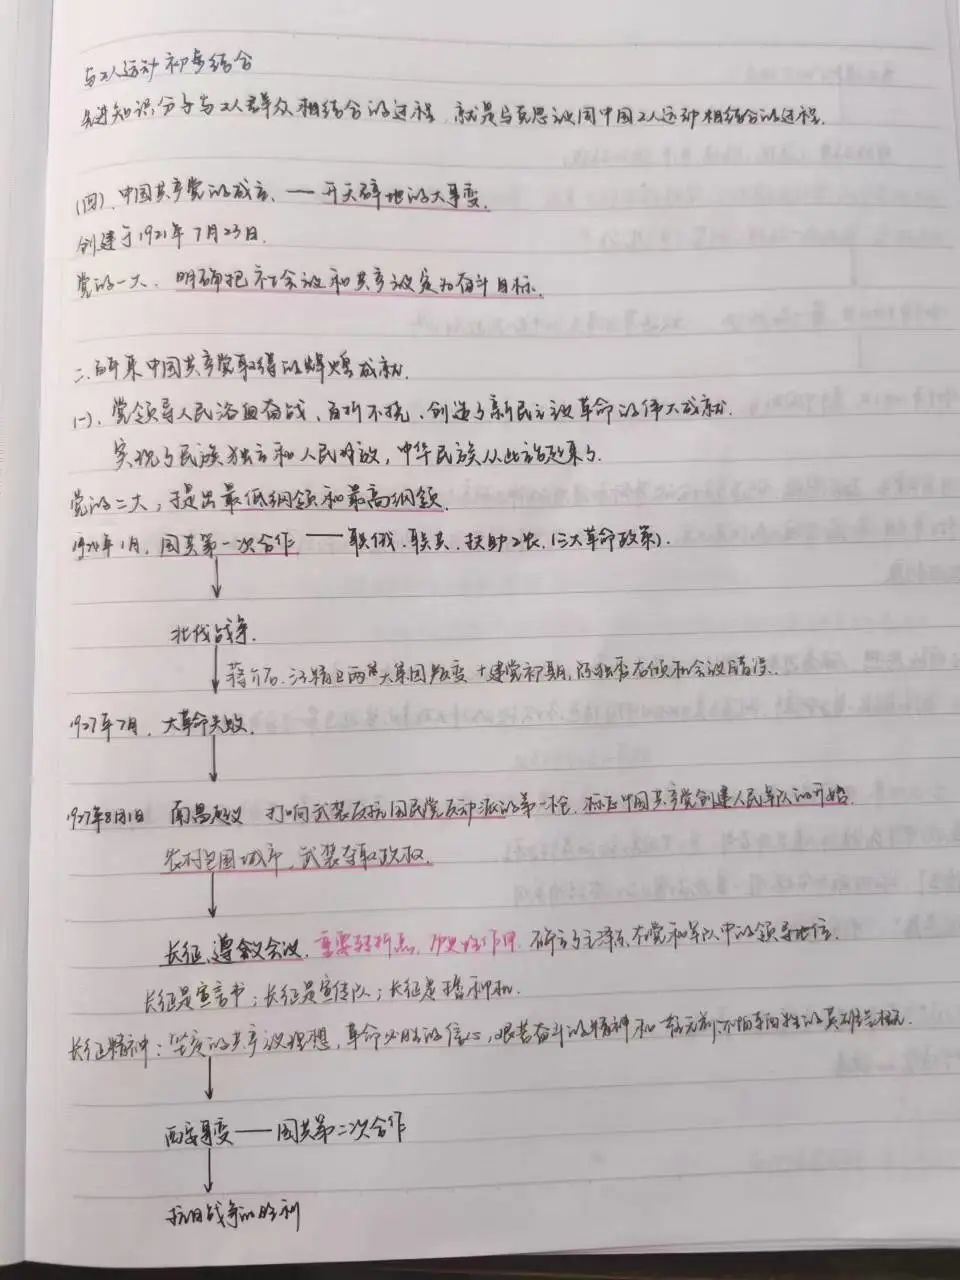 与工人运动初步结合
先进知识分子与工人群众相结合的过程，就是马克思议同中国工人运动相结合的过程.
(四)、中国共产党的成立、— 开天辟地的大事变.
创建于1921年7月23日.
党的一大、明确把社会议和共产议定为奋斗目标.
二.百年来中国共产党取得的辉煌成就.
(一)、党领导人民浴血奋战、百折不挠、创造了新民主议革命的伟大成就.
实现了民族独立和人民解放，中华民族从此站起来了.
党的二大，提出最低纲领和最高纲领.
1924年1月，国共第一次合作 —— 联俄、联共、扶助工农.(三大革命政策).
北伐战争.
蒋介石、汪精卫两大集团叛变 + 建党初期，陈独秀右倾机会议错误.
1927年7月、大革命失败.
1927年8月1日 南昌起议 打响武装反抗国民党反动派的第一枪.标志中国共产党创建人民军队的开始.
农村包围城市、武装夺取政权.
长征、遵义会议、重要转折点、历史性作用.确立了毛泽东在党和军队中的领导地位.
长征是宣言书；长征是宣传队；长征是播种机.
长征精神：坚定的共产议理想，革命必胜的信心，艰苦奋斗的精神和一往无前、不怕牺牲的英雄气概.
西安事变 —— 国共第二次合作
抗日战争的胜利